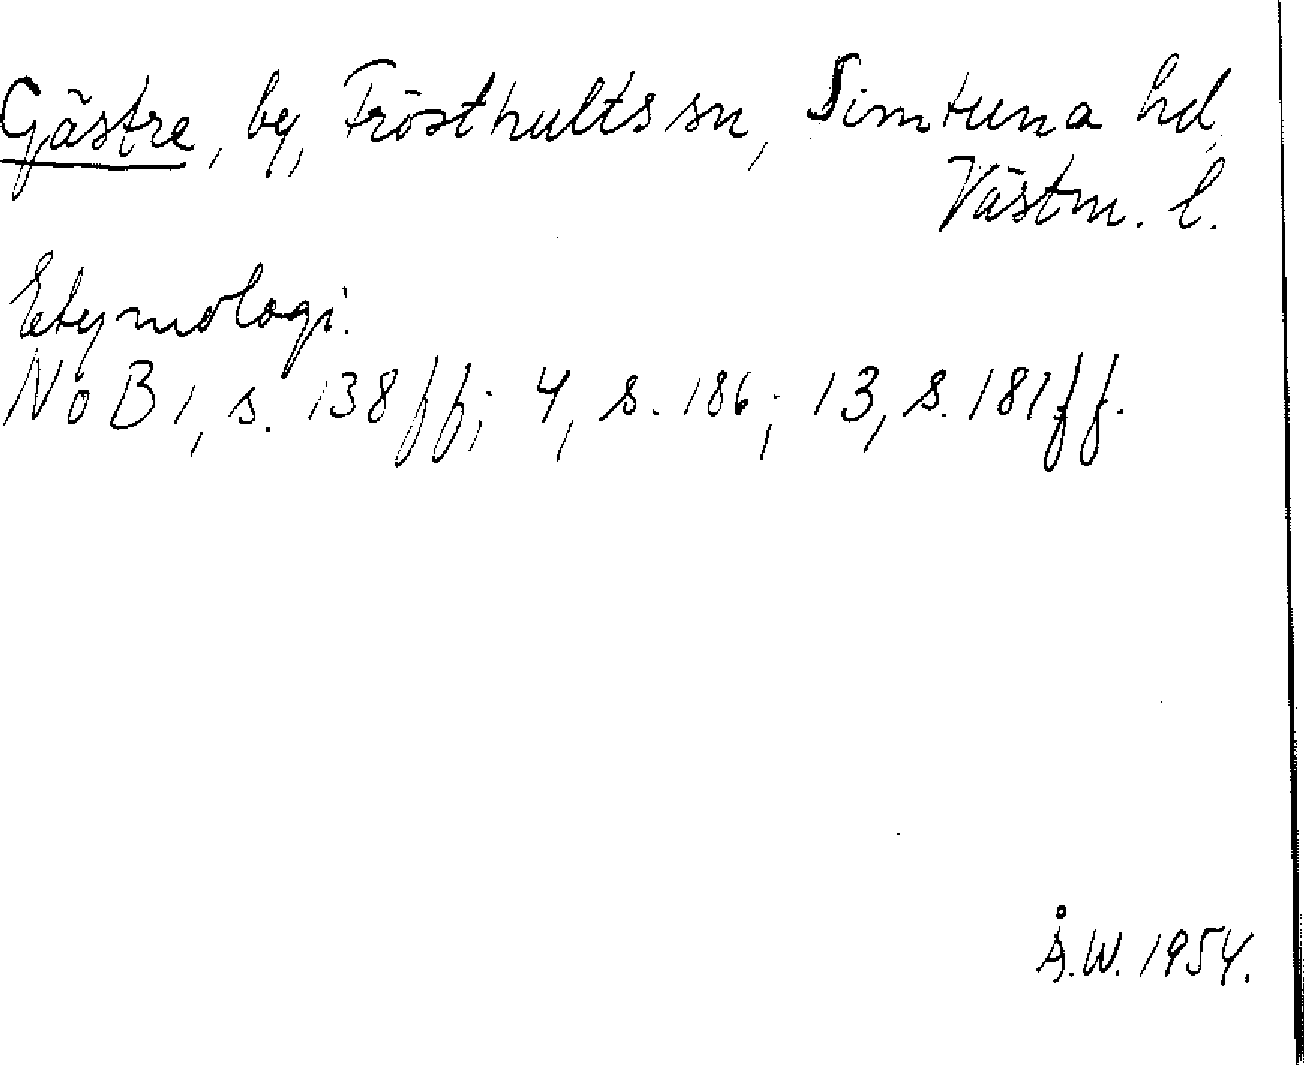 Gästre, by, Frösthults sn, Simtuna hd,
Västm. l.
Etymologi.
NoB 1, s. 138 ff; 4, s. 186; 13, s. 181 ff.
Å.W. 1954.